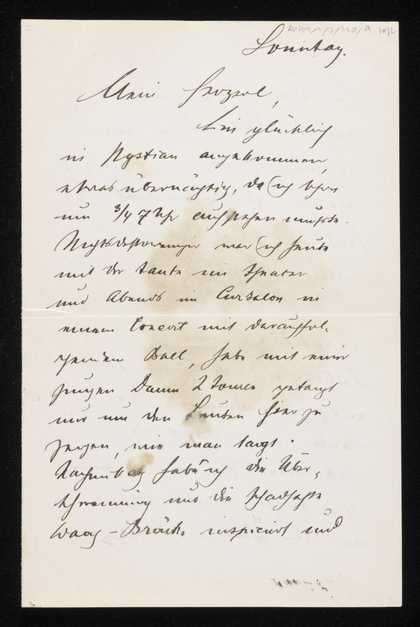 Sonntag.
Mein
bin glücklich
in Pystian angekommen,
etwas übernächtig, da ich schon
um 3/4 7 Uhr aufstehen musste.
Nichtsdestoweniger war ich heute
mit der Tante im Theater
und Abends im Cursalon in
einem Concert mit darauffol-
gendem Ball, habe mit einer
jungen Dame 2 Touren getanzt
nur um den Leuten hier zu
zeigen, wie man tanzt.
habe ich die Über-
schwemmung und die schadhafte
Waag-Brücke inspicirt und